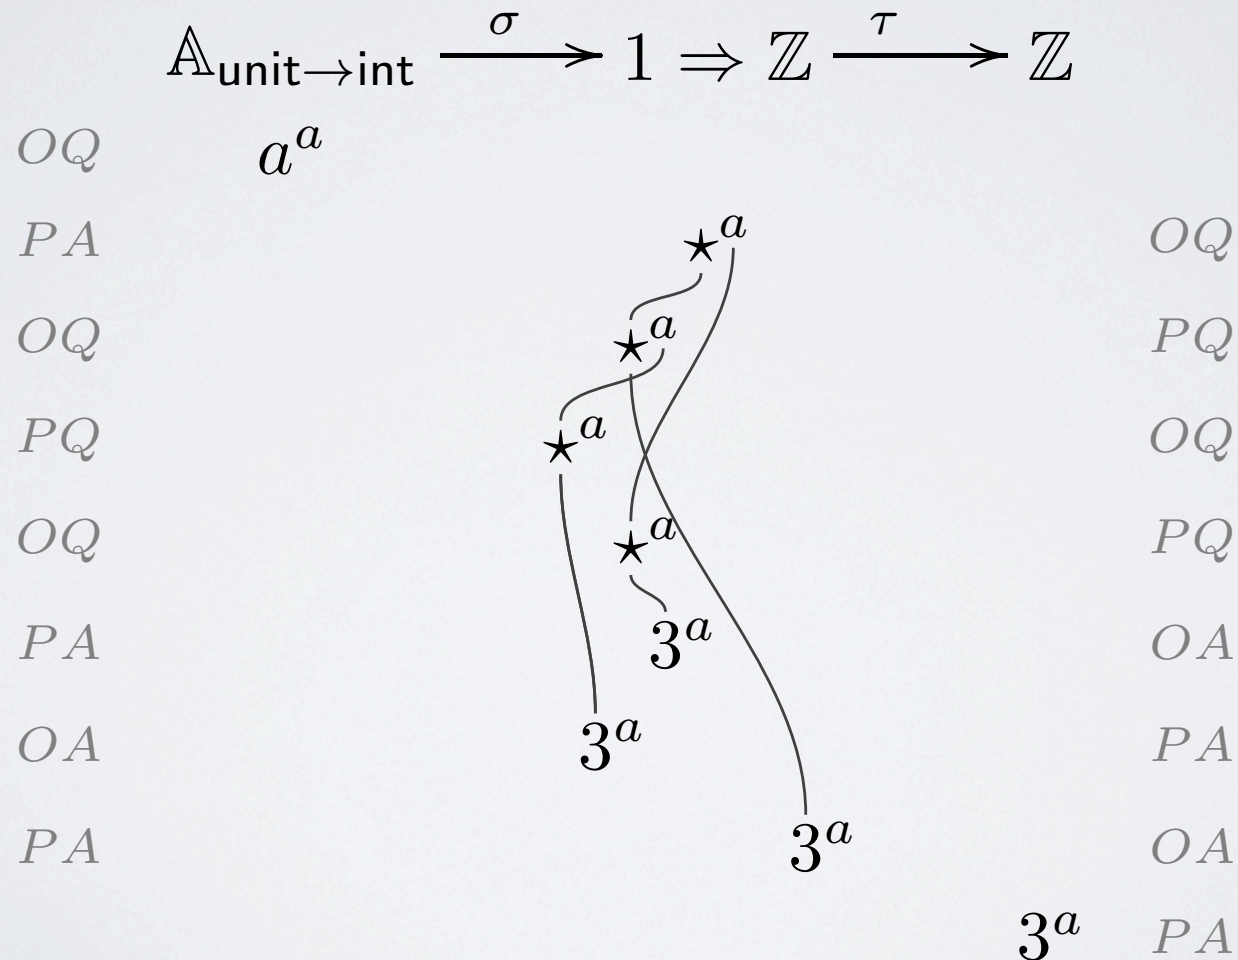 𝔸_{unit→int} σ 1 ⇒ ℤ τ ℤ
OQ a^a
PA ⋆^a OQ
OQ ⋆^a PQ
PQ ⋆^a OQ
OQ ⋆^a PQ
PA 3^a OA
OA 3^a PA
PA 3^a OA
3^a PA